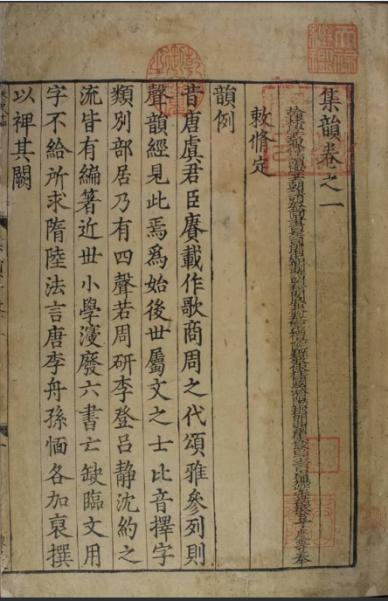 集韻卷之一
翰林學士 丁度等奉
敕脩定
韻例
昔唐虞君臣賡載作歌商周之代頌雅參列則
聲韻經見此焉爲始後世屬文之士比音擇字
類別部居乃有四聲若周研李登呂静沈約之
流皆有編著近世小學寖廢六書亡缺臨文用
字不給所求隋陸法言唐李舟孫愐各加裒撰
以裨其闕